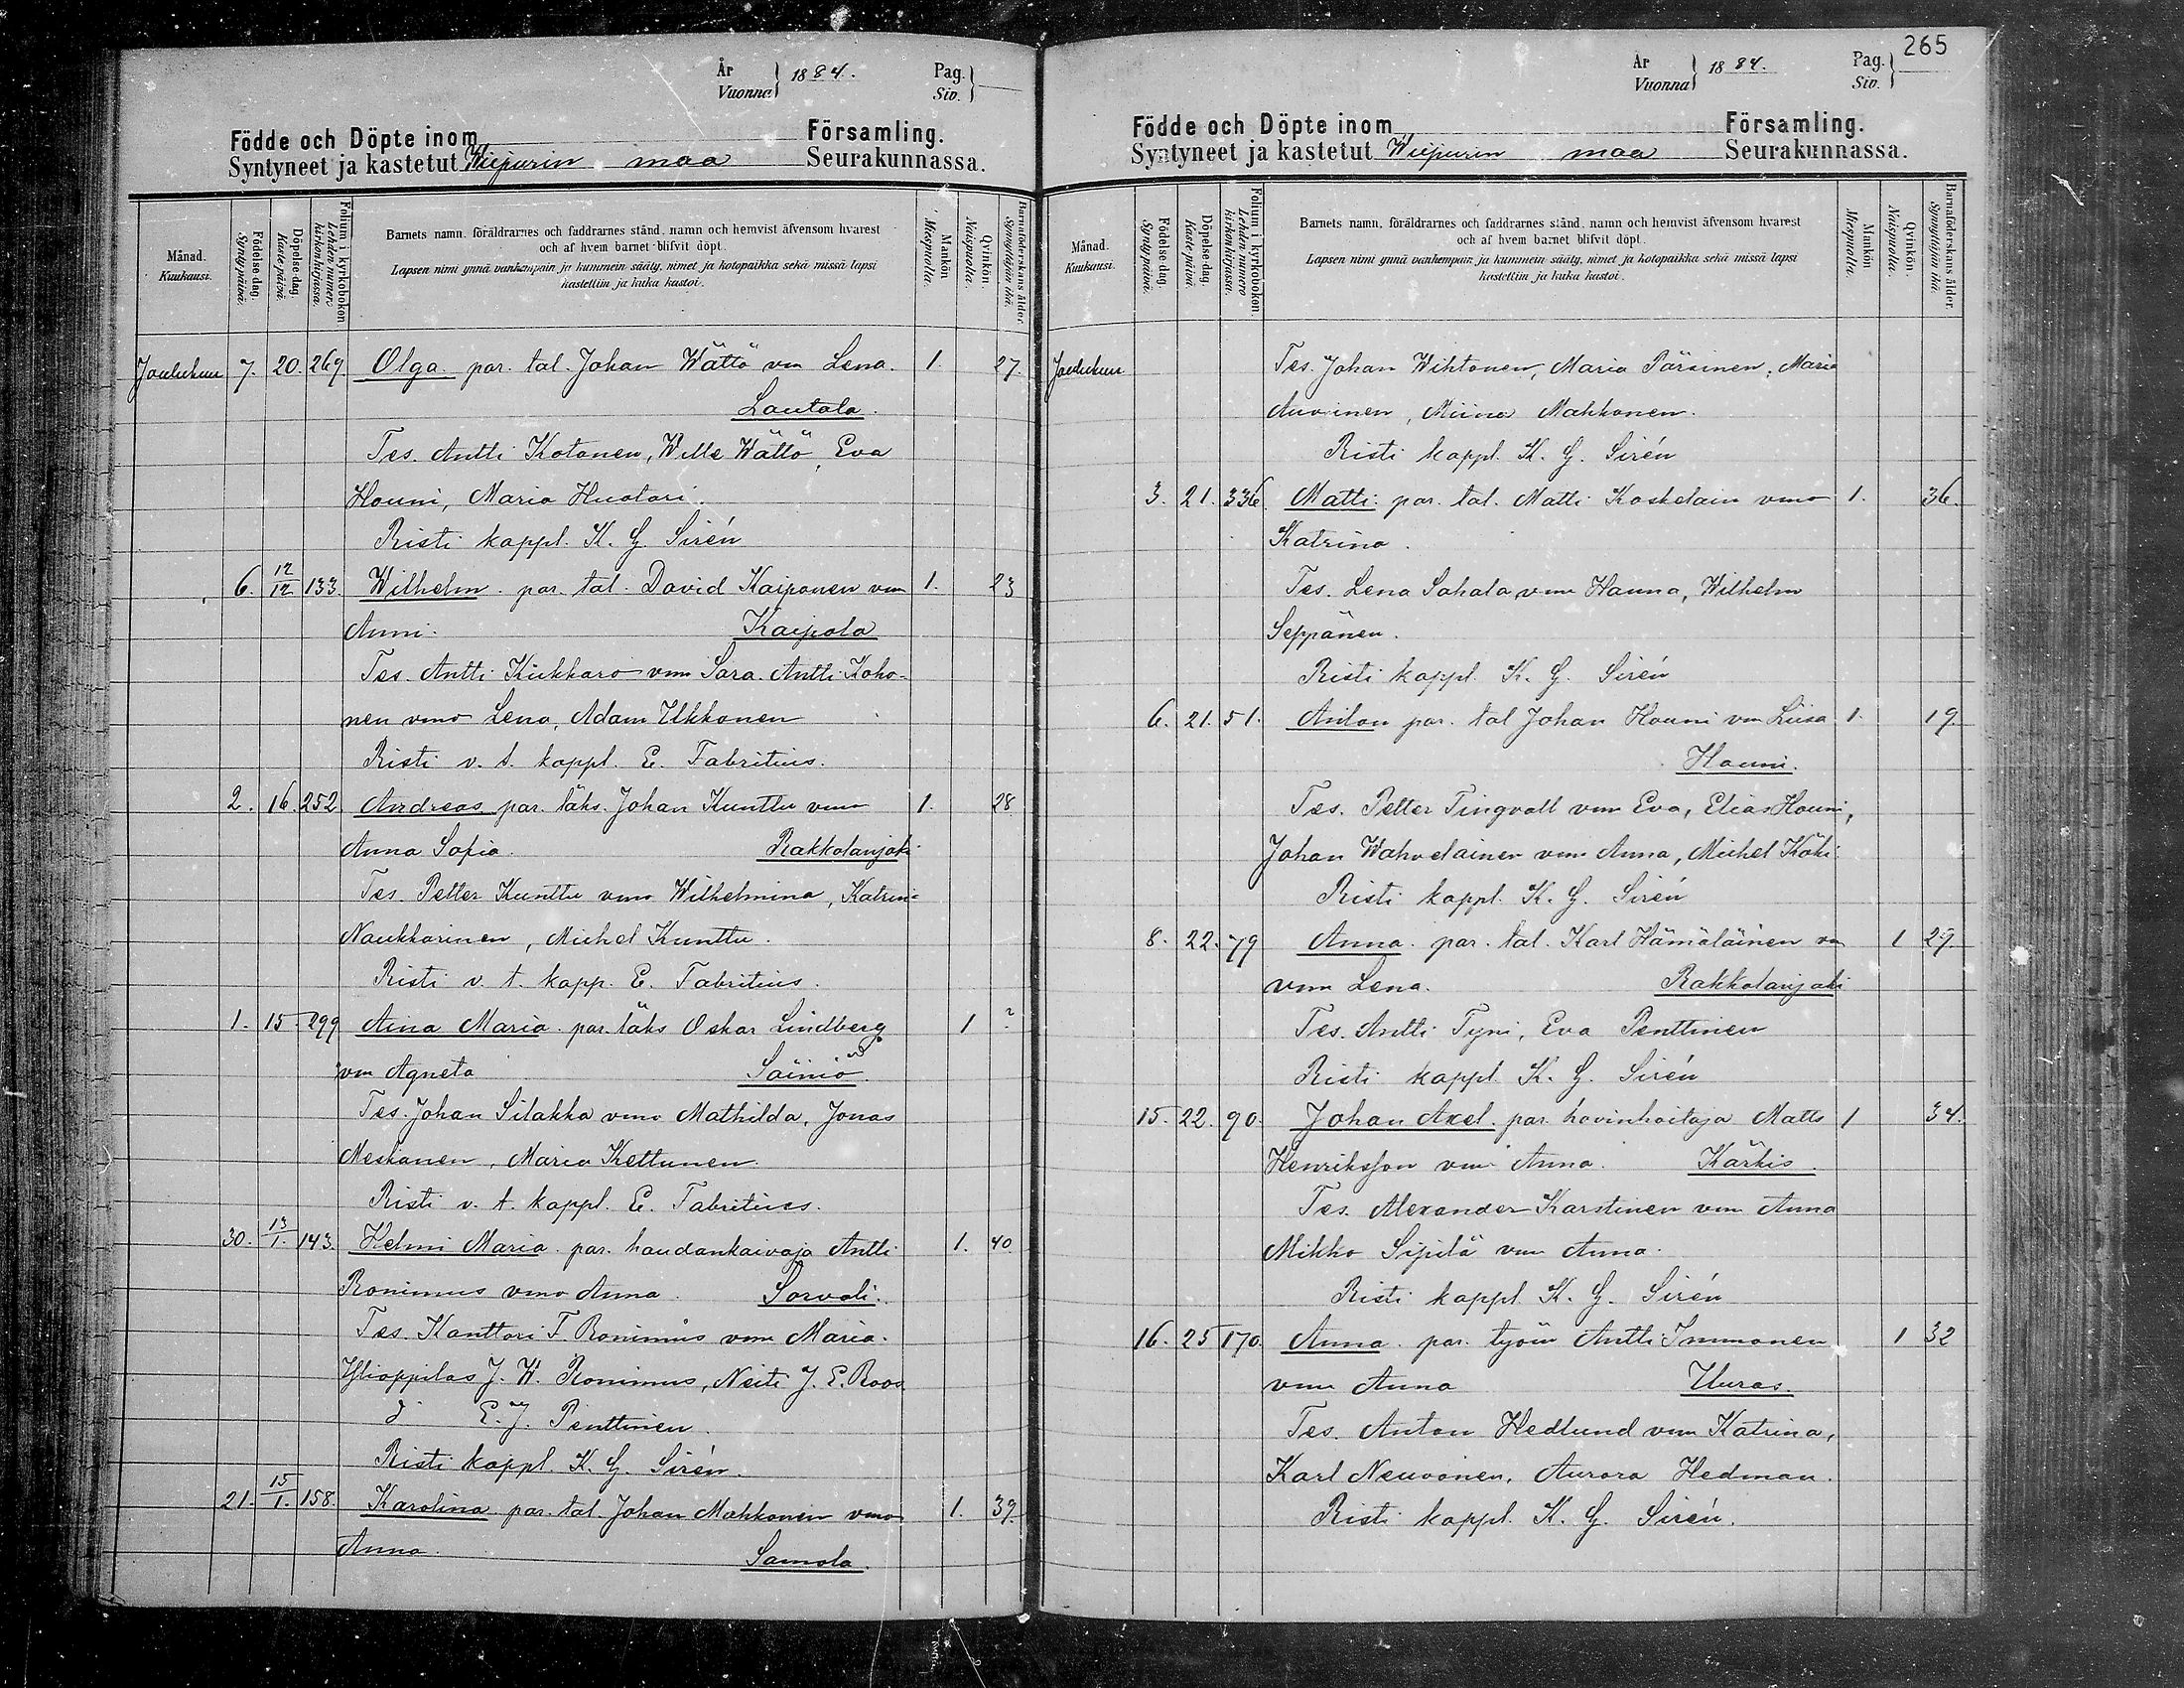 År Vuonna } 1884. Pag. Siv. }
Födde och Döpte inom Församling.
Syntyneet ja kastetut Wiipurin maa Seurakunnassa.
Månad. Kuukausi.
Födelse-dag. Syntypäivä.
Döpelse-dag. Kastepäivä.
Folium i kyrkoboken Lehden numero kirkonkirjassa.
Barnets namn, föräldrarnes och faddrarnes stånd, namn och hemvist äfvensom hvarest
och af hvem barnet blifvit döpt.
Lapsen nimi ynnä vanhempain ja kummein sääty, nimet ja kotopaikka sekä missä lapsi
kastettiin ja kuka kastoi.
Mankön Miespuolia.
Qvinkön. Naispuolia.
Barnaföderskans ålder Synnyttäjän ikä.
Joulukuu 7. 20. 269 Olga par. tal. Johan Wättö vm Lena. 1. 27
Lautala.
Tes. Antti Kotonen, Wille Wättö, Eva
Houni, Maria Huotari.
Risti kappl. K. G. Sirén
6. 12/12 133. Wilhelm. par. tal. David Kaiponen vm 1. 23
Anni. Kaipola
Tes. Antti Kukkaro vmo Sara. Antti Koho-
nen vmo Lena, Adam Ukkonen
Risti v. t. kappl. E. Fabritius.
2. 16. 252 Andreas par. läks. Johan Kunttu vmo 1. 28
Anna Sofia. Rakkolanjoki
Tes. Petter Kunttu vmo Wilhelmina, Katrina
Naukkarinen, Michel Kunttu.
Risti v. t. kapp. E. Fabritius.
1. 15. 299 Aina Maria par. läks Oskar Lindberg 1 ?
vm Agneta Säiniö
Tes. Johan Silakka vmo Mathilda, Jonas
Meskanen, Maria Kettunen.
Risti v. t. kappl. E. Fabritius.
30. 13/1. 143. Helmi Maria par. haudankaivaja Antti 1. 40
Ronimus vmo Anna. Sorvali.
Tes. Kanttori F. Ronimus vmo Maria.
Ylioppilas J. W. Ronimus, Neiti J. E. Roos
d:o E. J. Penttinen.
Risti kappl. K. G. Sirén.
21. 15/1. 158. Karolina par. tal. Johan Mahkonen vmo 1. 39.
Anna. Samola.
265
År Vuonna } 1884. Pag. Siv. }
Födde och Döpte inom Församling.
Syntyneet ja kastetut Wiipurin maa Seurakunnassa.
Månad. Kuukausi.
Födelse-dag. Syntypäivä.
Döpelse-dag. Kastepäivä.
Folium i kyrkoboken Lehden numero kirkonkirjassa.
Barnets namn, föräldrarnes och faddrarnes stånd, namn och hemvist äfvensom hvarest
och af hvem barnet blifvit döpt.
Lapsen nimi ynnä vanhempain ja kummein sääty, nimet ja kotopaikka sekä missä lapsi
kastettiin ja kuka kastoi.
Mankön Miespuolia.
Qvinkön. Naispuolia.
Barnaföderskans ålder. Synnyttäjän ikä.
Joulukuu Tes. Johan Wihtonen, Maria Pärsinen, Maria
Auvinen, Miina Mahkonen.
Risti kappl. K. G. Sirén
3. 21. 336. Matti par. tal. Matti Koskelain vmo 1. 36.
Katrina.
Tes. Lena Sahala vmo Hanna, Wilhelm
Seppänen.
Risti kappl. K. G. Sirén
6. 21. 51. Anton par. tal Johan Houni vm Liisa 1. 19.
Houni.
Tes. Petter Tingvall vmo Eva, Elias Houni,
Johan Wahvelainen vmo Anna, Michel Köhi
Risti kappl. K. G. Sirén
8. 22. 79 Anna par. tal. Karl Hämäläinen vm 1 29
vmo Lena. Rakkolanjoki
Tes. Antti Tyni, Eva Penttinen
Risti kappl. K. G. Sirén
15. 22. 90. Johan Axel. par. hovinhoitaja Matts 1 34.
Henriksson vmo Anna. Kärkis.
Tes. Alexander Karstinen vmo Anna
Mikko Sipilä vmo Anna.
Risti kappl. K. G. Sirén
16. 25 170. Anna par. työm Antti Immonen 1 32
vmo Anna Uuras.
Tes. Anton Hedlund vmo Katrina,
Karl Neuvonen, Aurora Hedman.
Risti kappl. K. G. Sirén.